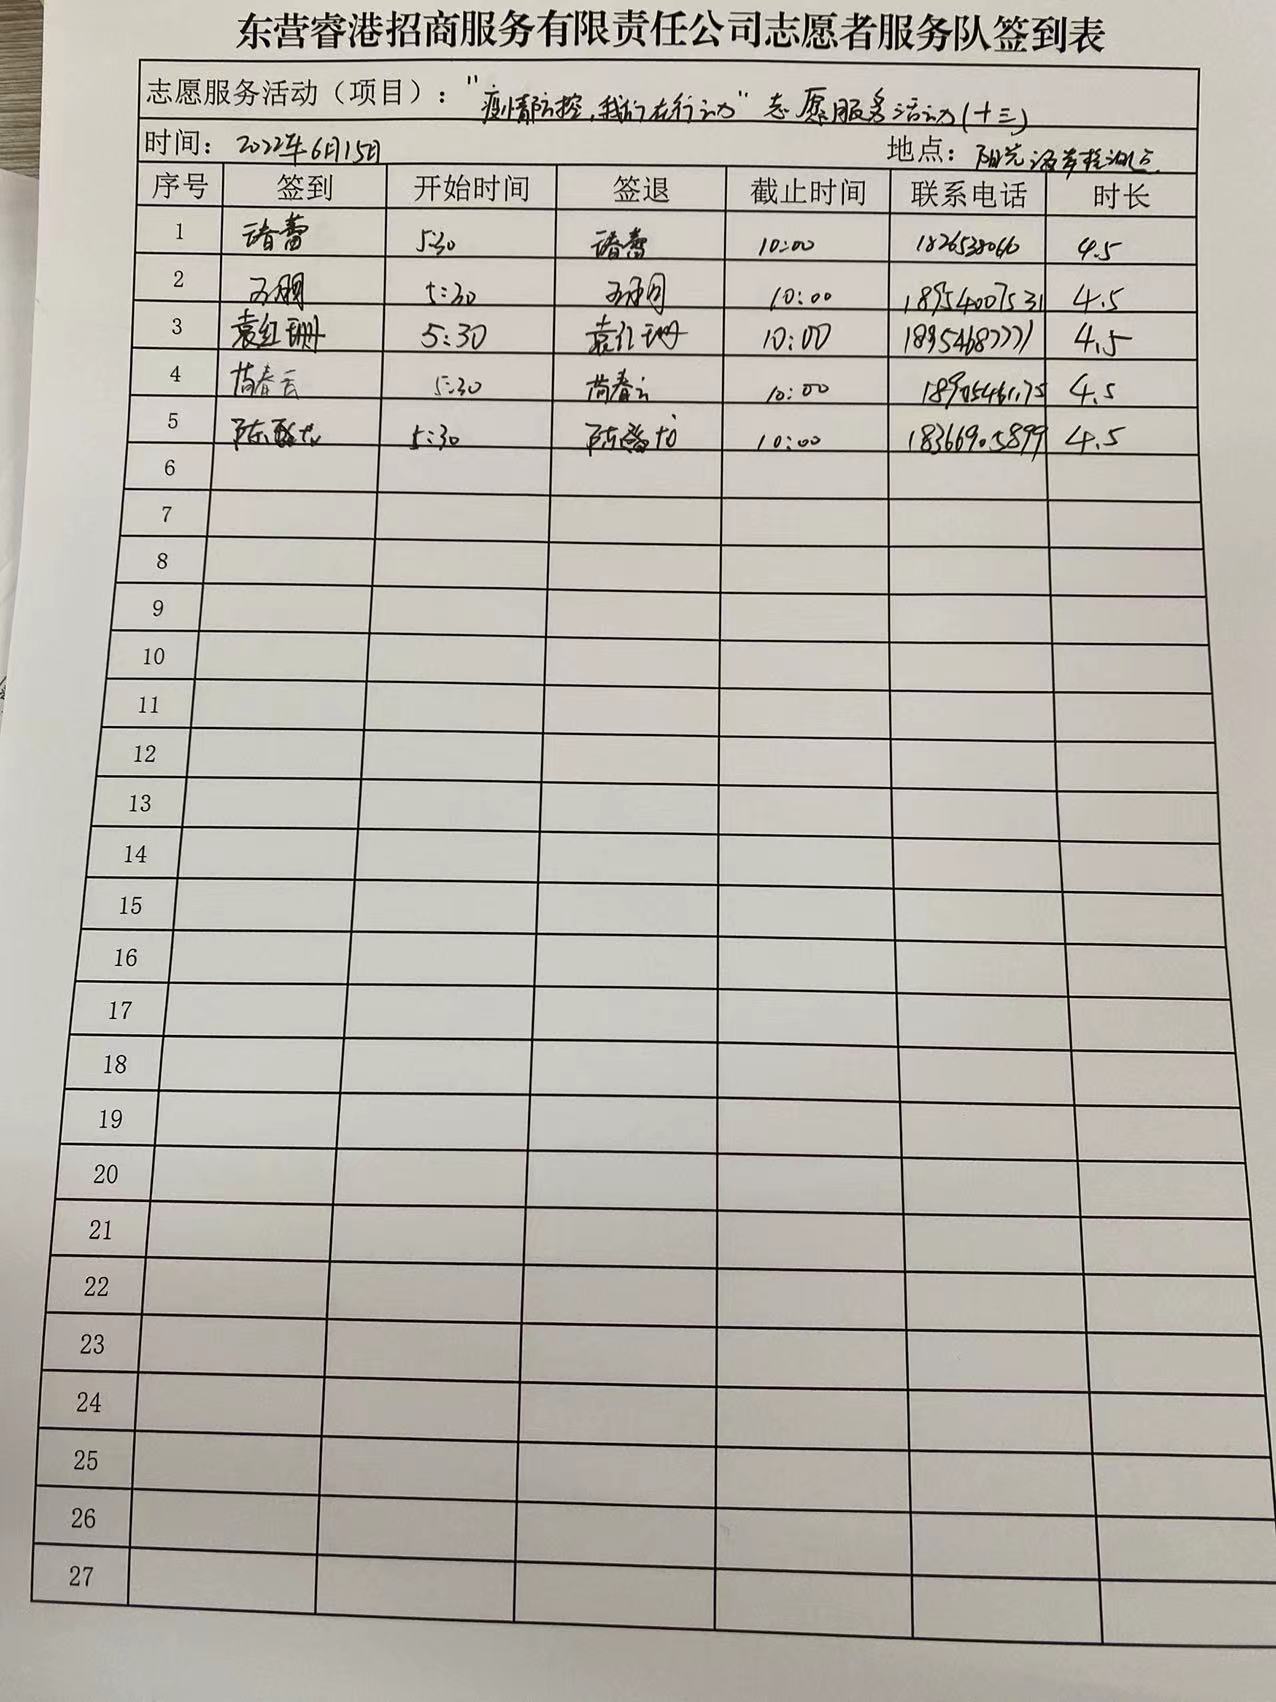 东营睿港招商服务有限责任公司志愿者服务队签到表
志愿服务活动（项目）："疫情防控，我们在行动"志愿服务活动（十三）
时间：2022年6月15日 地点：阳光
序号 签到 开始时间 签退 截止时间 联系电话 时长
1 5:30 10:00 4.5
2 5:30 10:00 18954007531 4.5
3 袁红珊 5:30 袁红珊 10:00 18954687771 4.5
4 春云 5:30 春云 10:00 4.5
5 陈 5:30 陈 10:00 18366905899 4.5
6
7
8
9
10
11
12
13
14
15
16
17
18
19
20
21
22
23
24
25
26
27